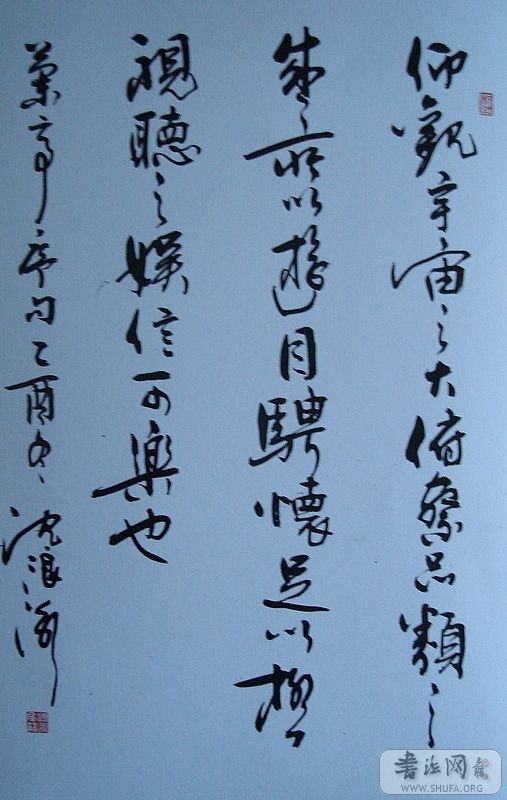 仰觀宇宙之大俯察品類之
盛所以遊目騁懷足以極
視聽之娛信可樂也
蘭亭序句乙酉冬沈浪
書法网
WWW.SHUFA.ORG